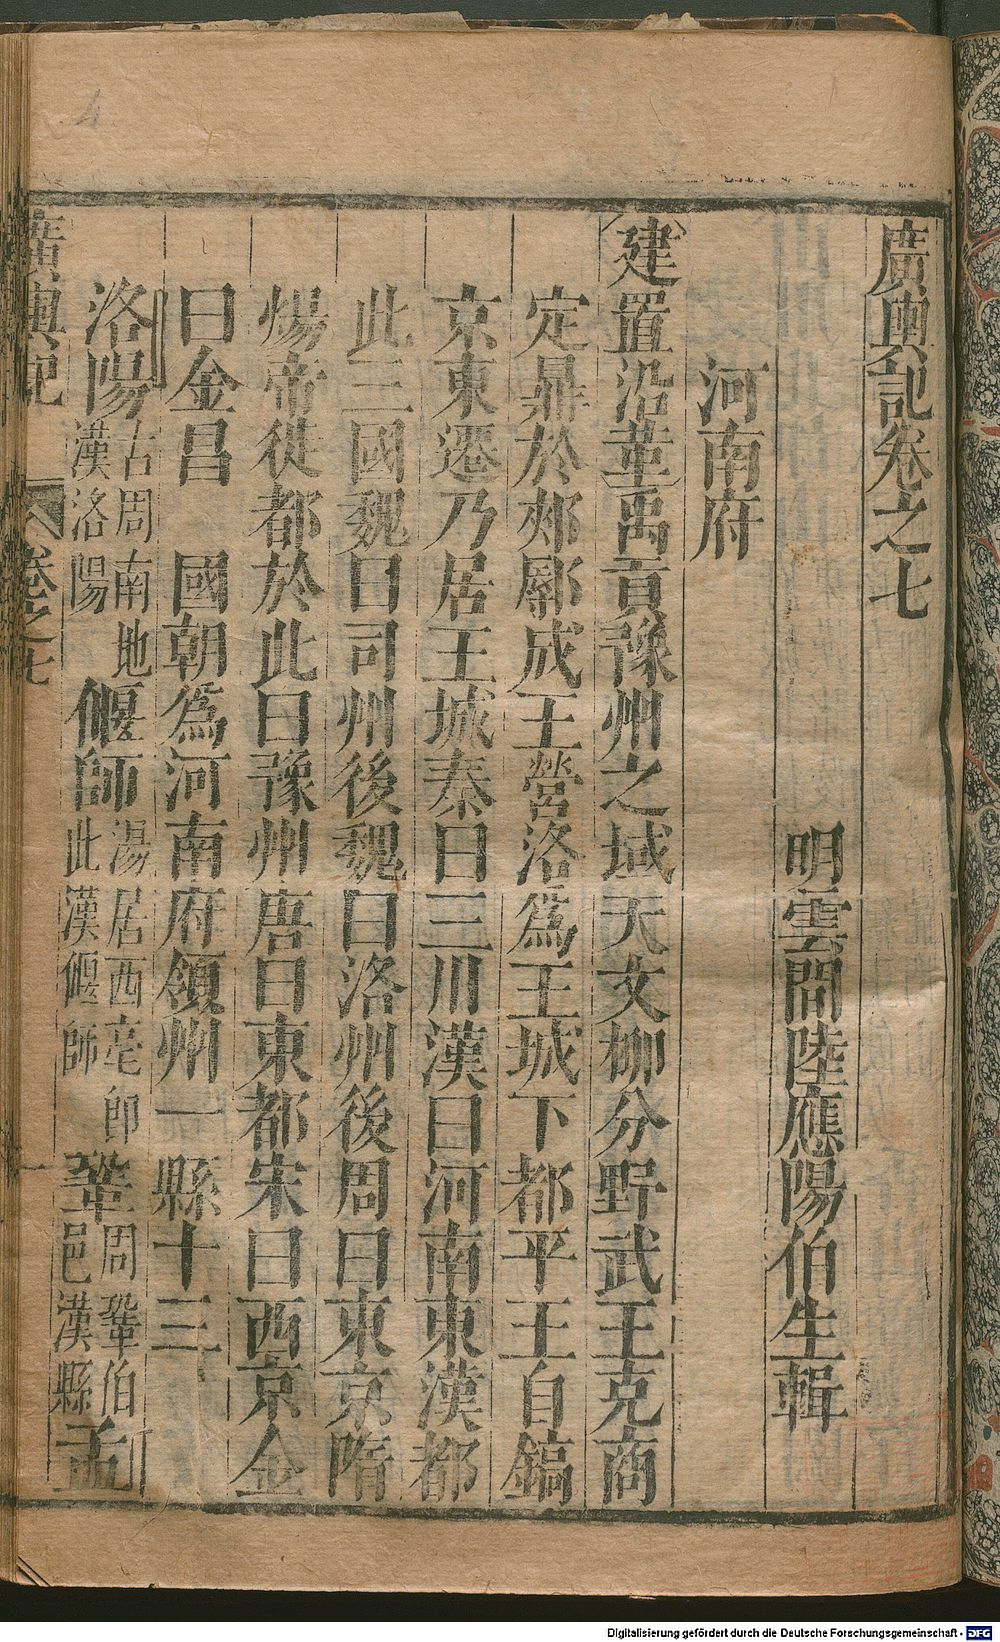 廣輿記卷之七
明雲間陸應陽伯生輯
河南府
建置沿革禹貢豫州之域天文柳分野武王克商
定鼎於郟鄏成王營洛爲王城下都平王自鎬
京東遷乃居王城秦曰三川漢曰河南東漢都
此三國魏曰司州後魏曰洛州後周曰東京隋
煬帝徙都於此曰豫州唐曰東都宋曰西京金
曰金昌 國朝爲河南府領州一縣十三
洛陽古周南地漢洛陽偃師湯居西亳卽此漢偃師鞏周鞏伯邑漢縣孟
廣輿記 卷之七 一
Digitalisierung gefördert durch die Deutsche Forschungsgemeinschaft - DFG